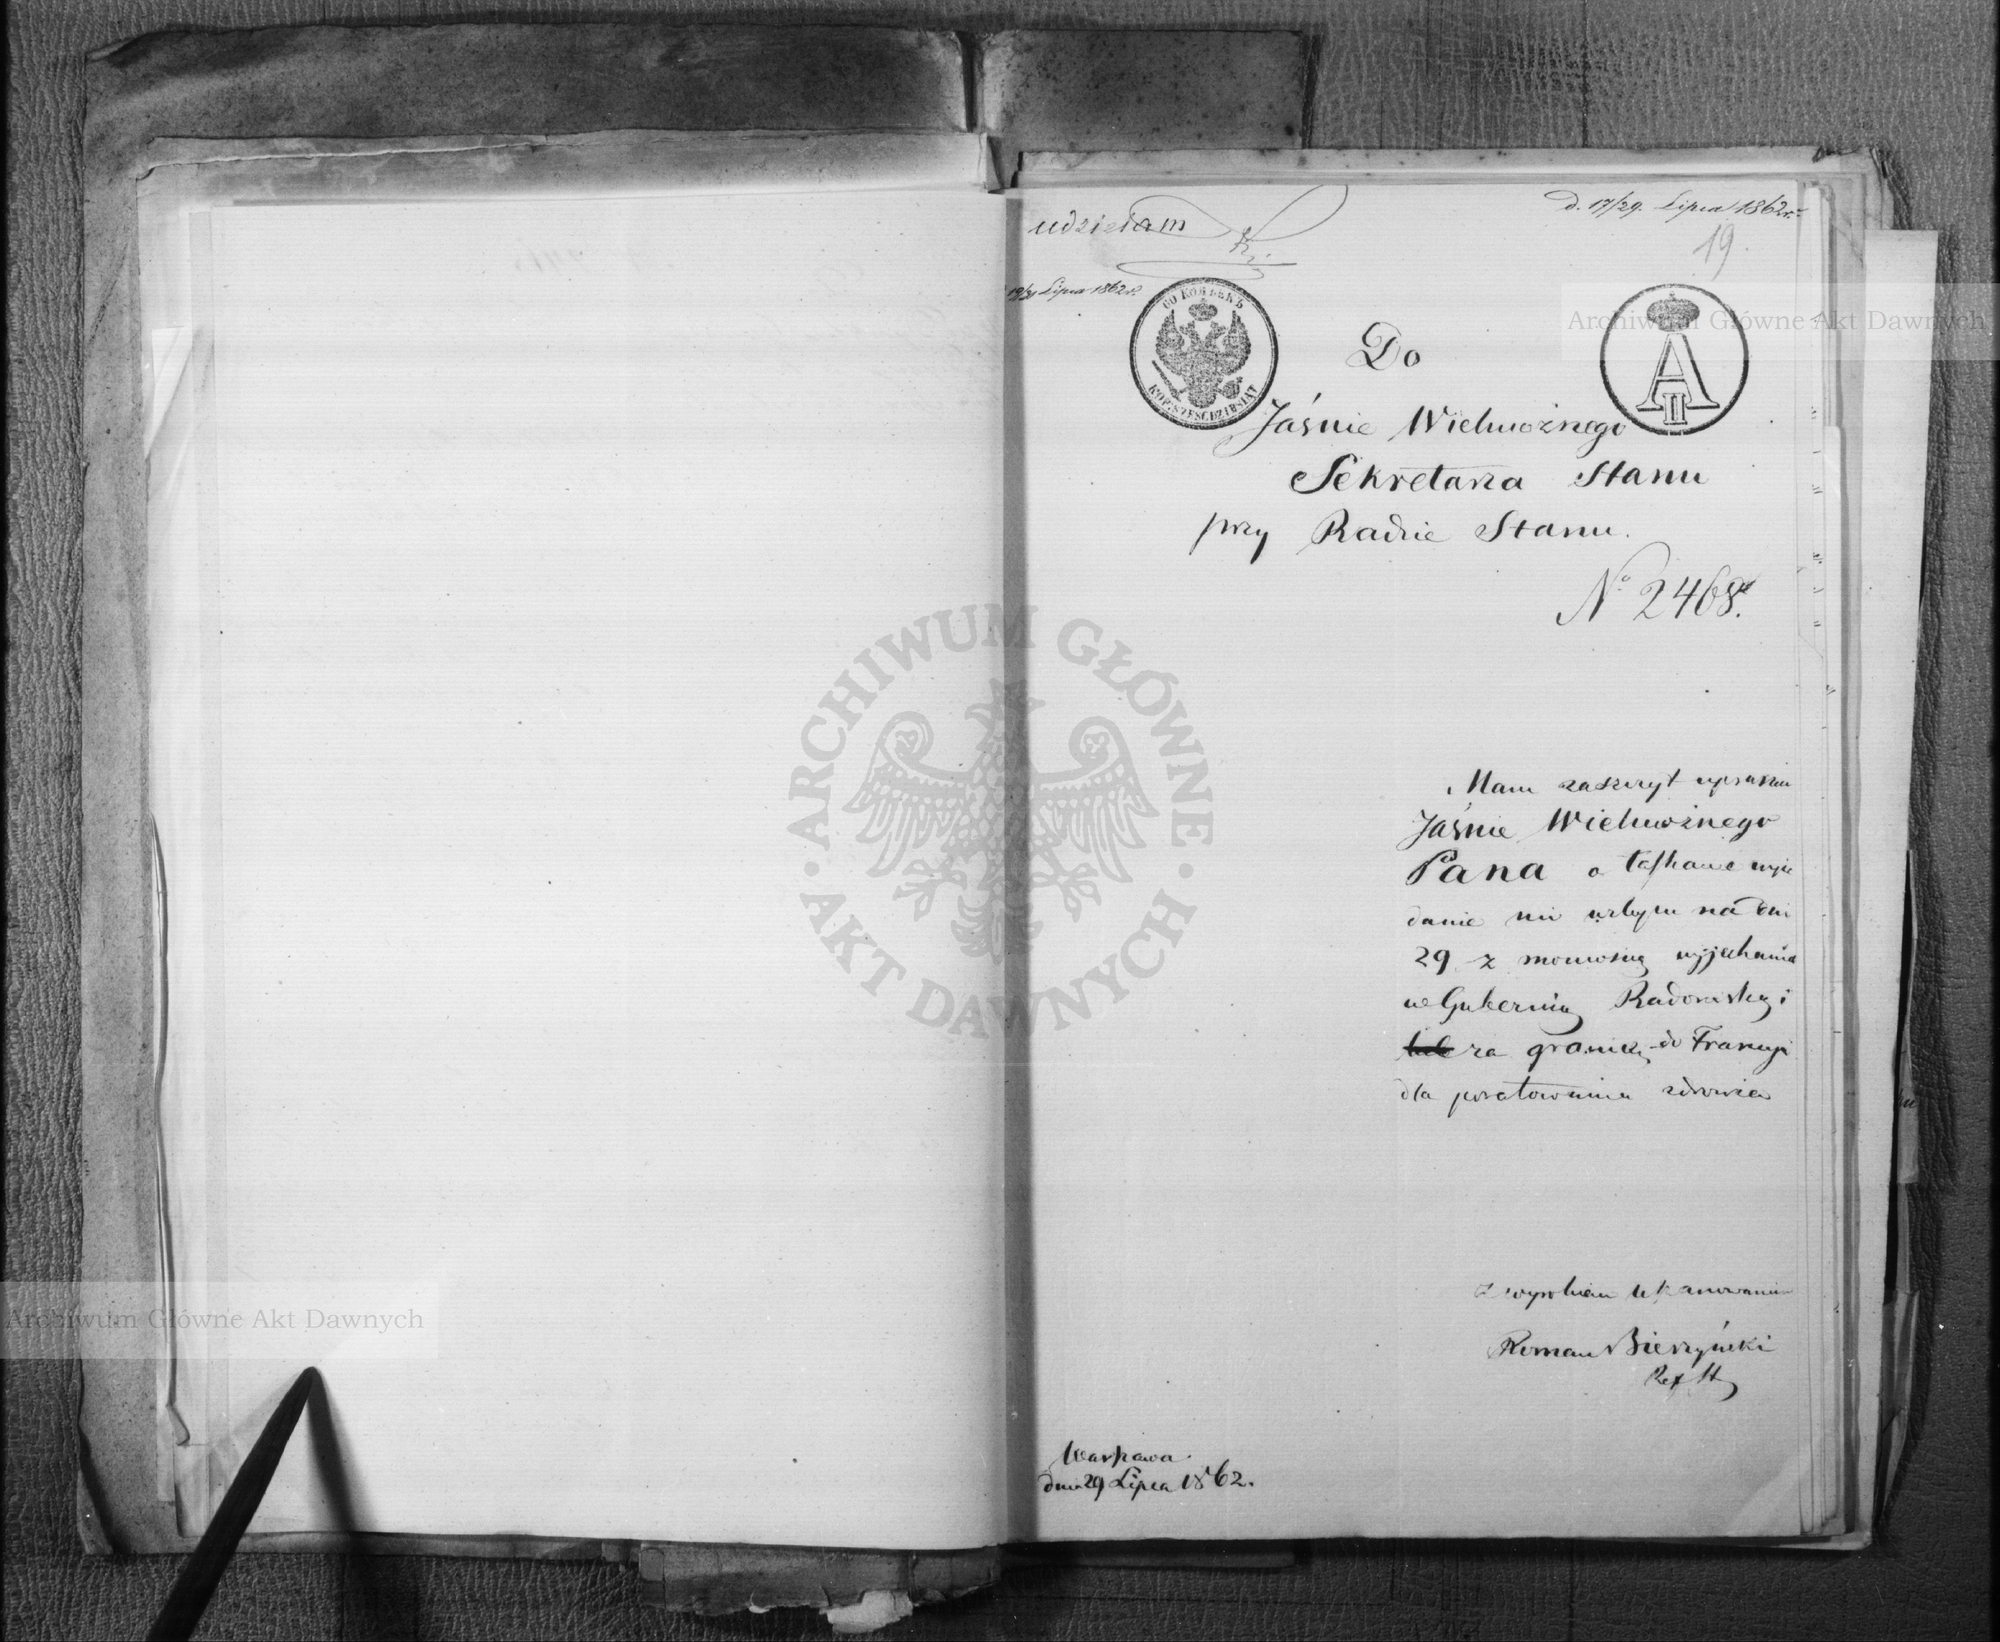 udzielam
d. 17/29. Lipca 1862 r.
19.
19/31 Lipca 1862 r.
60 КОПѢЕКЪ
KOP: SZEŚĆDZIESIĄT
A II
Do
Jaśnie Wielmożnego
Sekretarza Stanu
przy Radzie Stanu.
No 2468.
Mam zaszczyt upraszać
Jaśnie Wielmożnego
Pana o łaskawe wyje
danie mi urlopu na dni
29 z możnością wyjechania
w Gubernią Radomską i
za granicę do Francyi
dla poratowania zdrowia
z wysokiem uszanowaniem
Roman Bierzyński
Ref St
Warszawa
dnia 29 Lipca 1862.
Archiwum Główne Akt Dawnych
ARCHIWUM GŁÓWNE
AKT DAWNYCH
Archiwum Główne Akt Dawnych